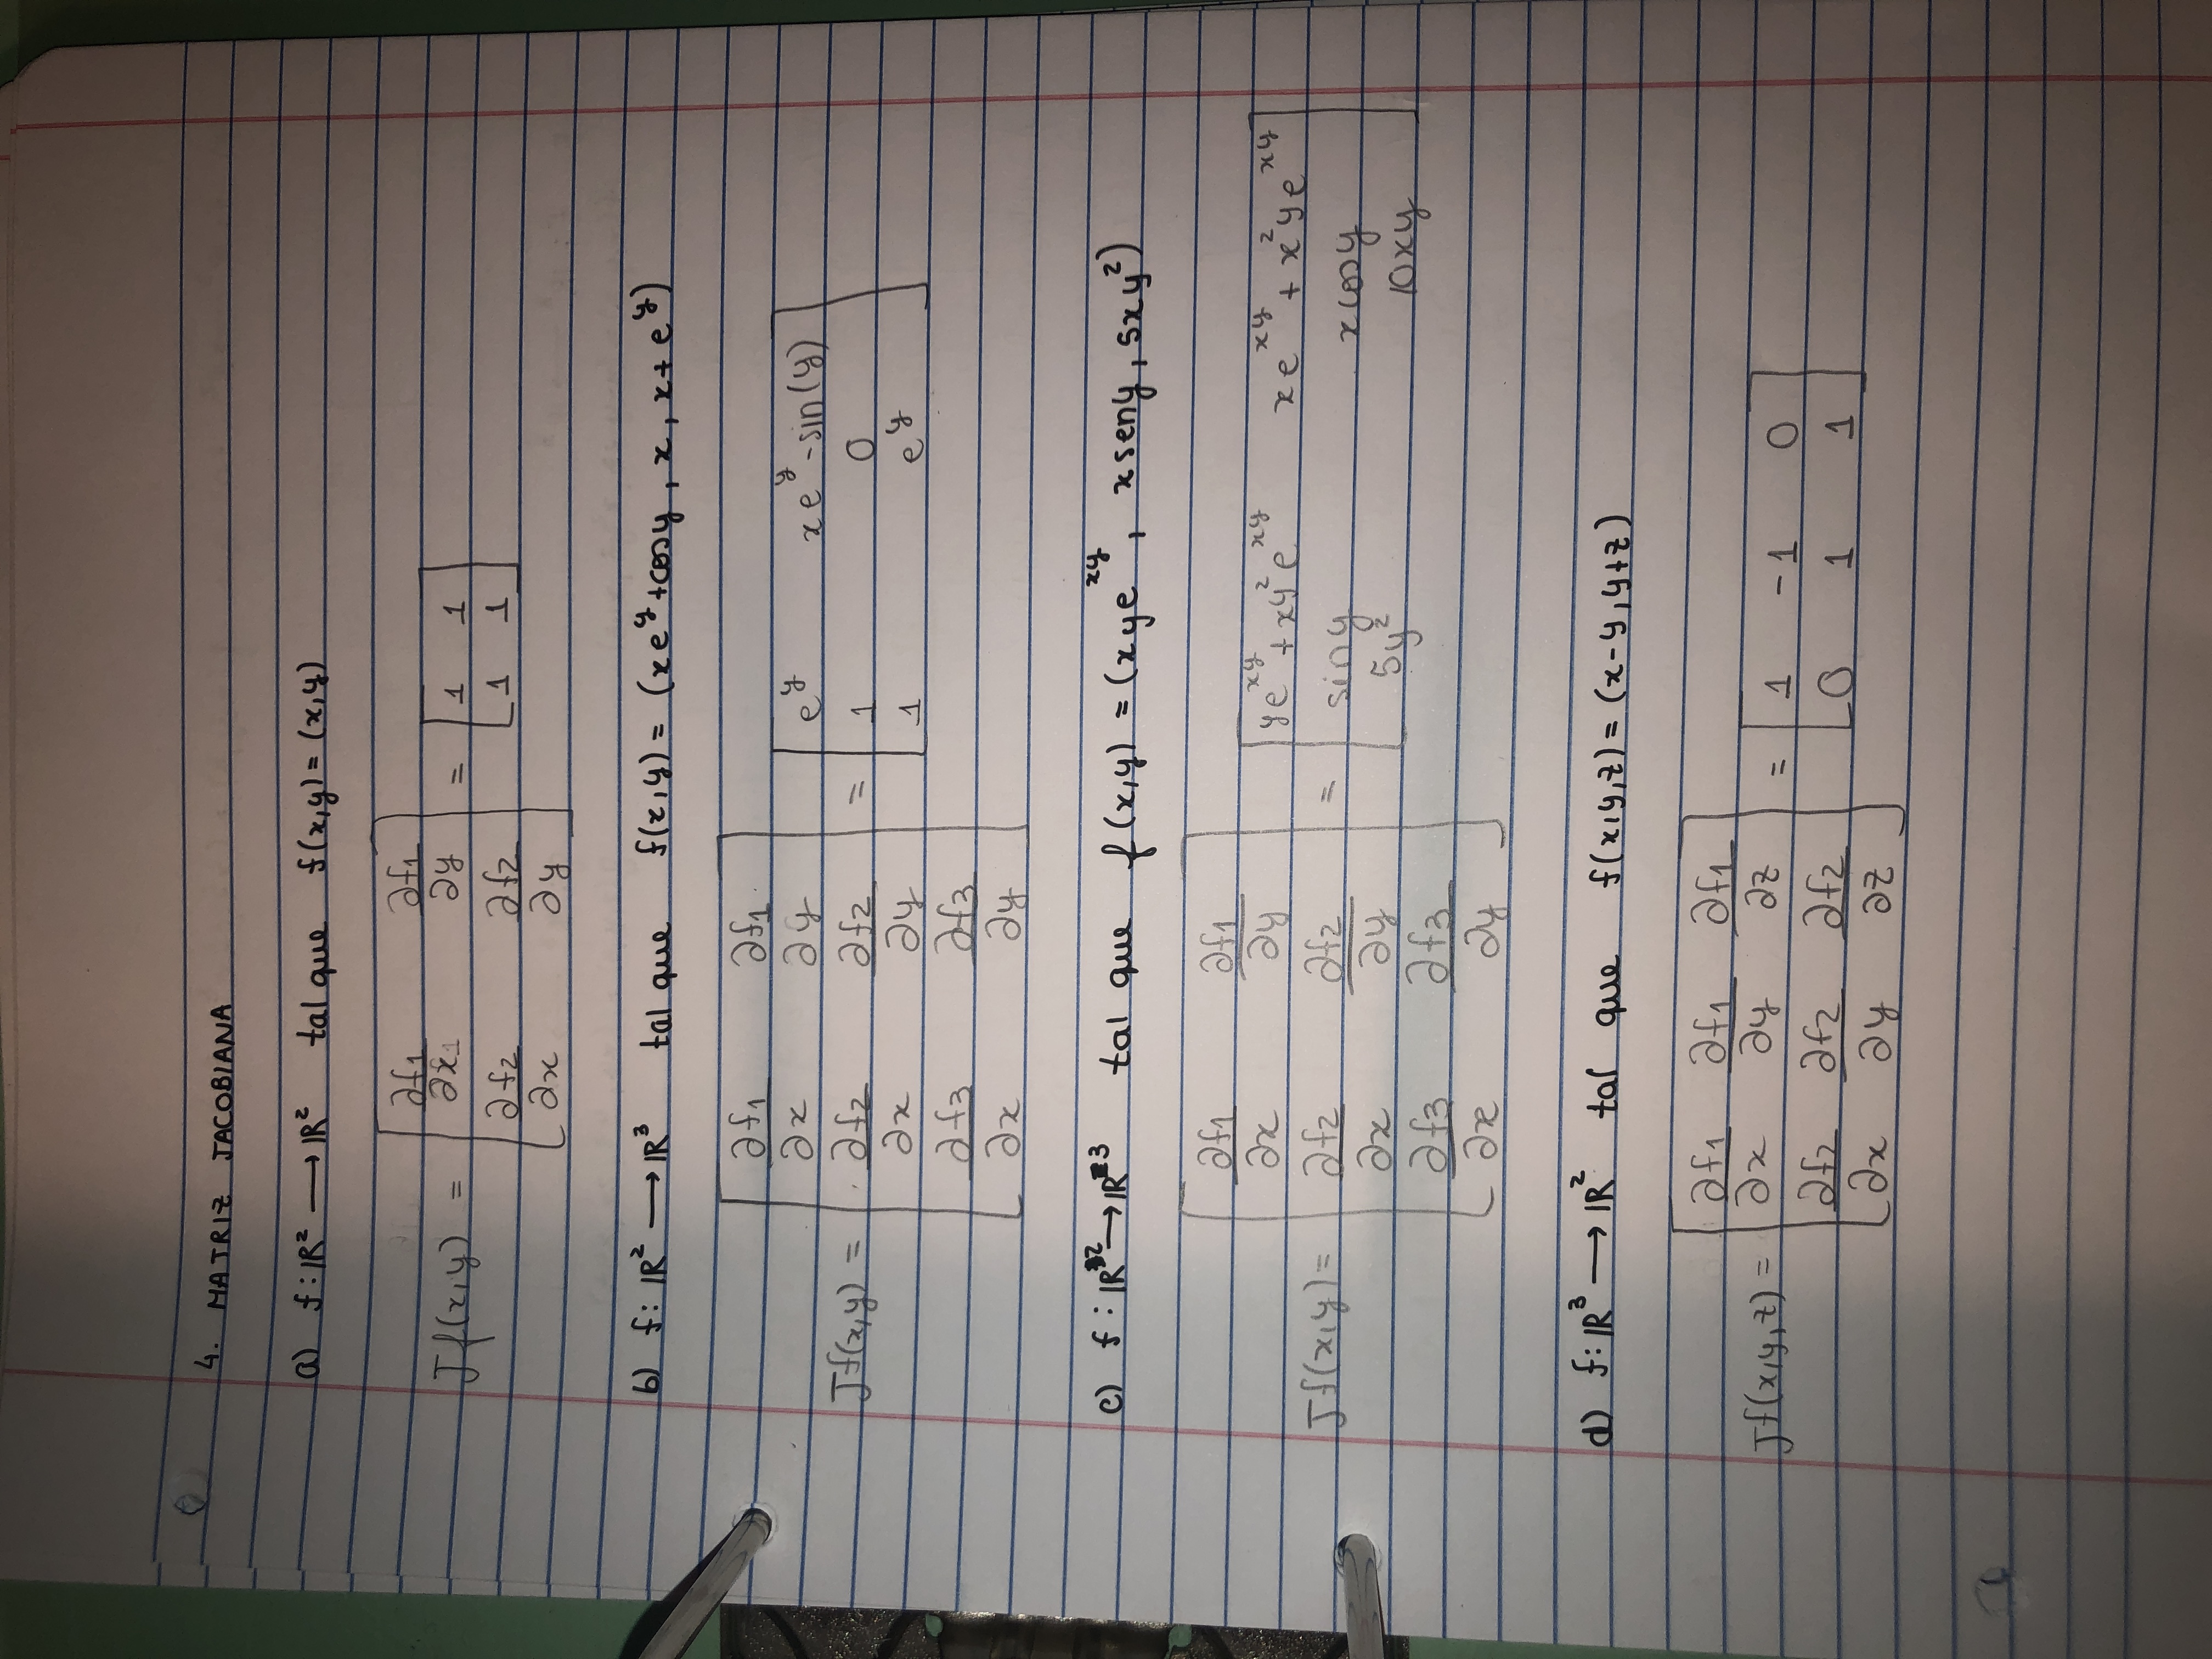 4. MATRIZ JACOBIANA
a) f: ℝ² ⟶ ℝ² tal que f(x,y) = (x,y)
Jf(x,y) = [ ∂f1/∂x1 ∂f1/∂y ; ∂f2/∂x ∂f2/∂y ] = [ 1 1 ; 1 1 ]
b) f: ℝ² ⟶ ℝ³ tal que f(x,y) = (xe^y + cosy, x, x + e^y)
Jf(x,y) = [ ∂f1/∂x ∂f1/∂y ; ∂f2/∂x ∂f2/∂y ; ∂f3/∂x ∂f3/∂y ] = [ e^y xe^y - sin(y) ; 1 0 ; 1 e^y ]
c) f: ℝ² → ℝ³ tal que f(x,y) = (xye^xy, x seny, 5xy²)
Jf(x,y) = [ ∂f1/∂x ∂f1/∂y ; ∂f2/∂x ∂f2/∂y ; ∂f3/∂x ∂f3/∂y ] = [ ye^xy + xy²e^xy xe^xy + x²ye^xy ; siny xcosy ; 5y² 10xy ]
d) f: ℝ³ ⟶ ℝ² tal que f(x,y,z) = (x-y, y+z)
Jf(x,y,z) = [ ∂f1/∂x ∂f1/∂y ∂f1/∂z ; ∂f2/∂x ∂f2/∂y ∂f2/∂z ] = [ 1 -1 0 ; 0 1 1 ]